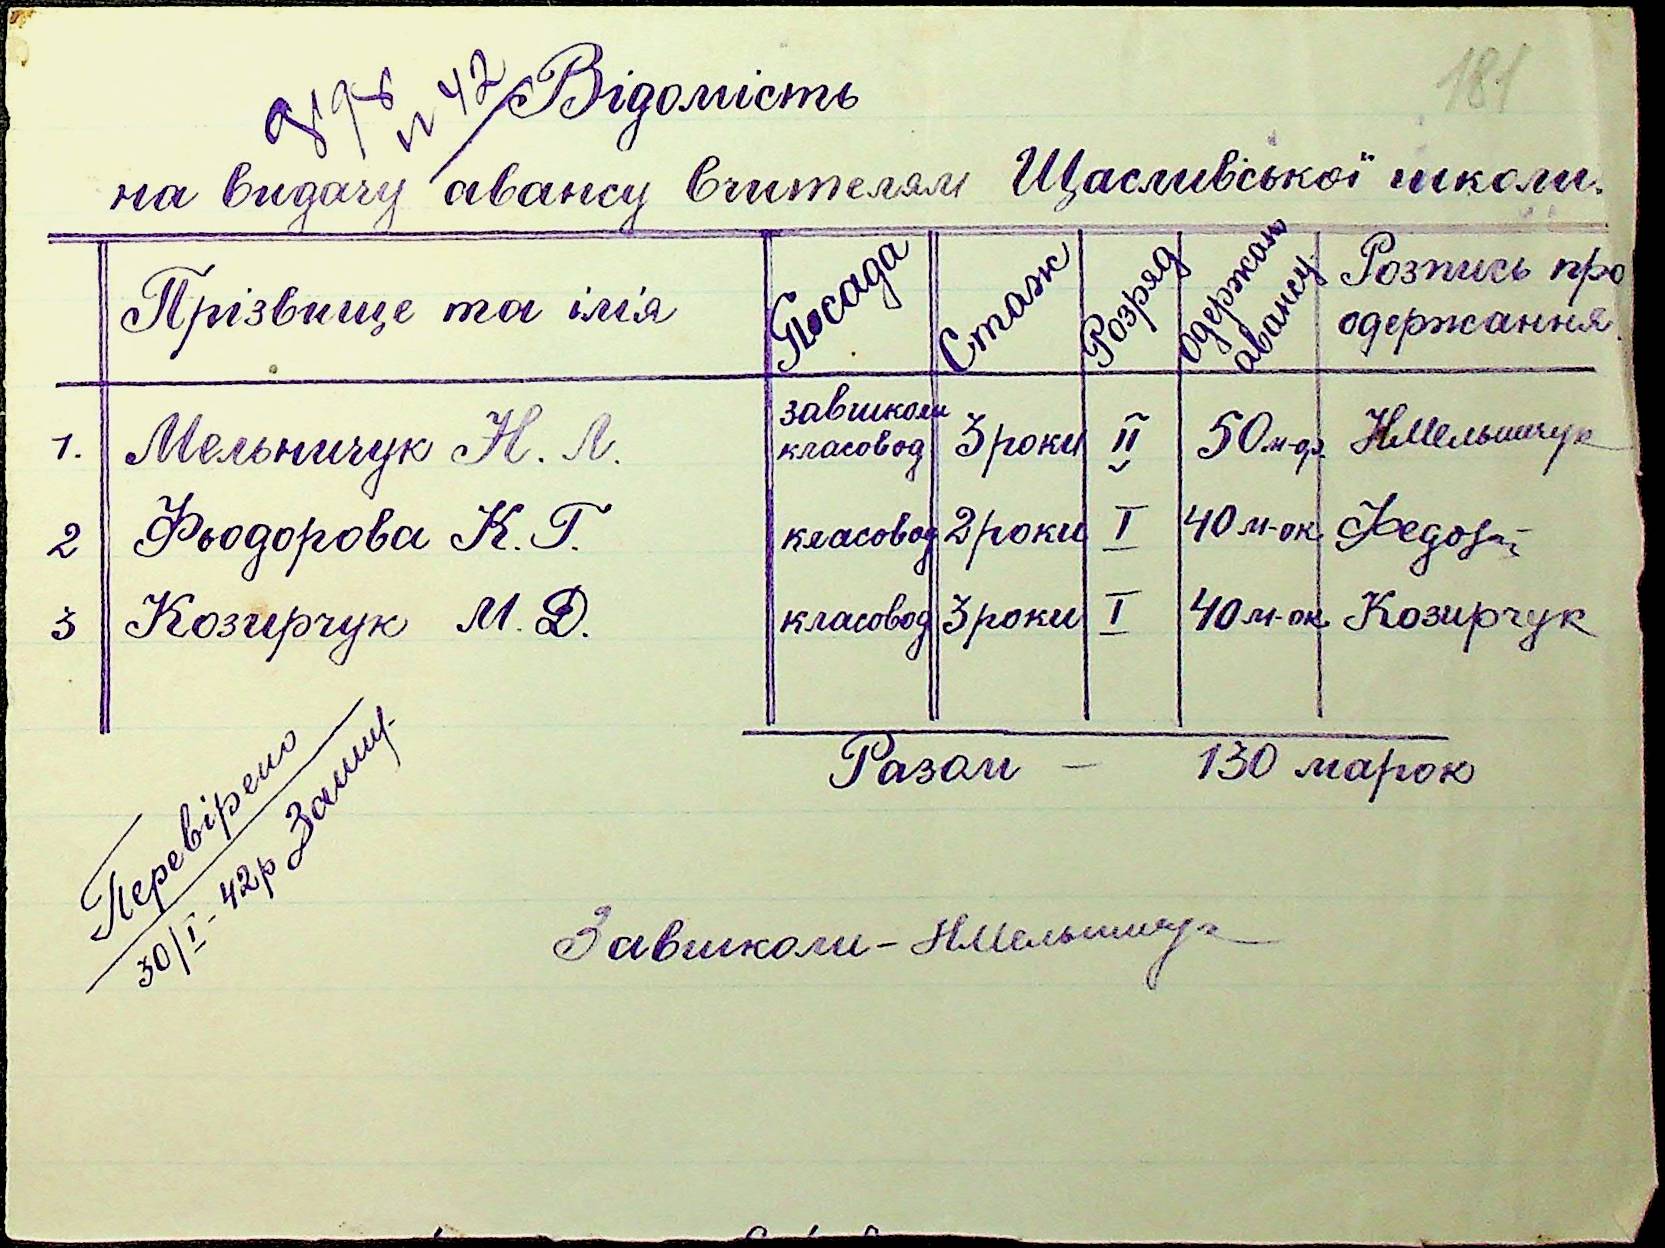 181
№ 42
Відомість
на видачу авансу вчителям Щасливської школи.
Прізвище та ім'я Посада Стаж Розряд Одержан. авансу Розпись про одержання
1. Мельничук Н. Л. завшколи класовод 3 роки II 50 м-ор. НМельничук
2 Фьодорова К. Г. класовод 2 роки I 40 м-ок Федор
3 Козирчук М. Д. класовод 3 роки I 40 м-ок Козирчук
Разом – 130 марок
Перевірено
30/I - 42р
Завшколи – НМельничук